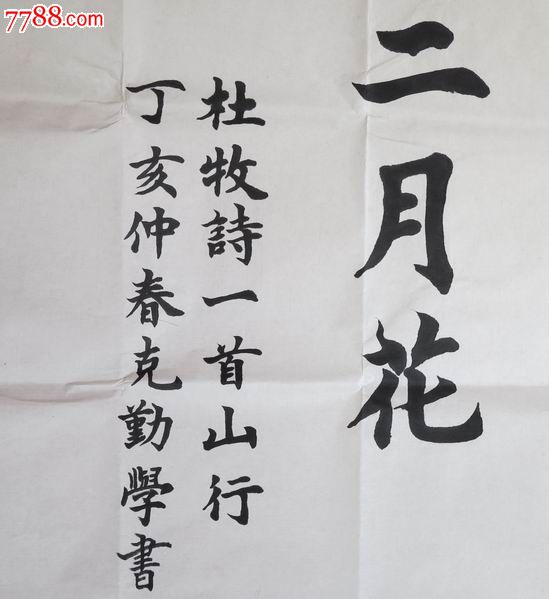 7788.com
二月花
杜牧詩一首山行
丁亥仲春克勤學書